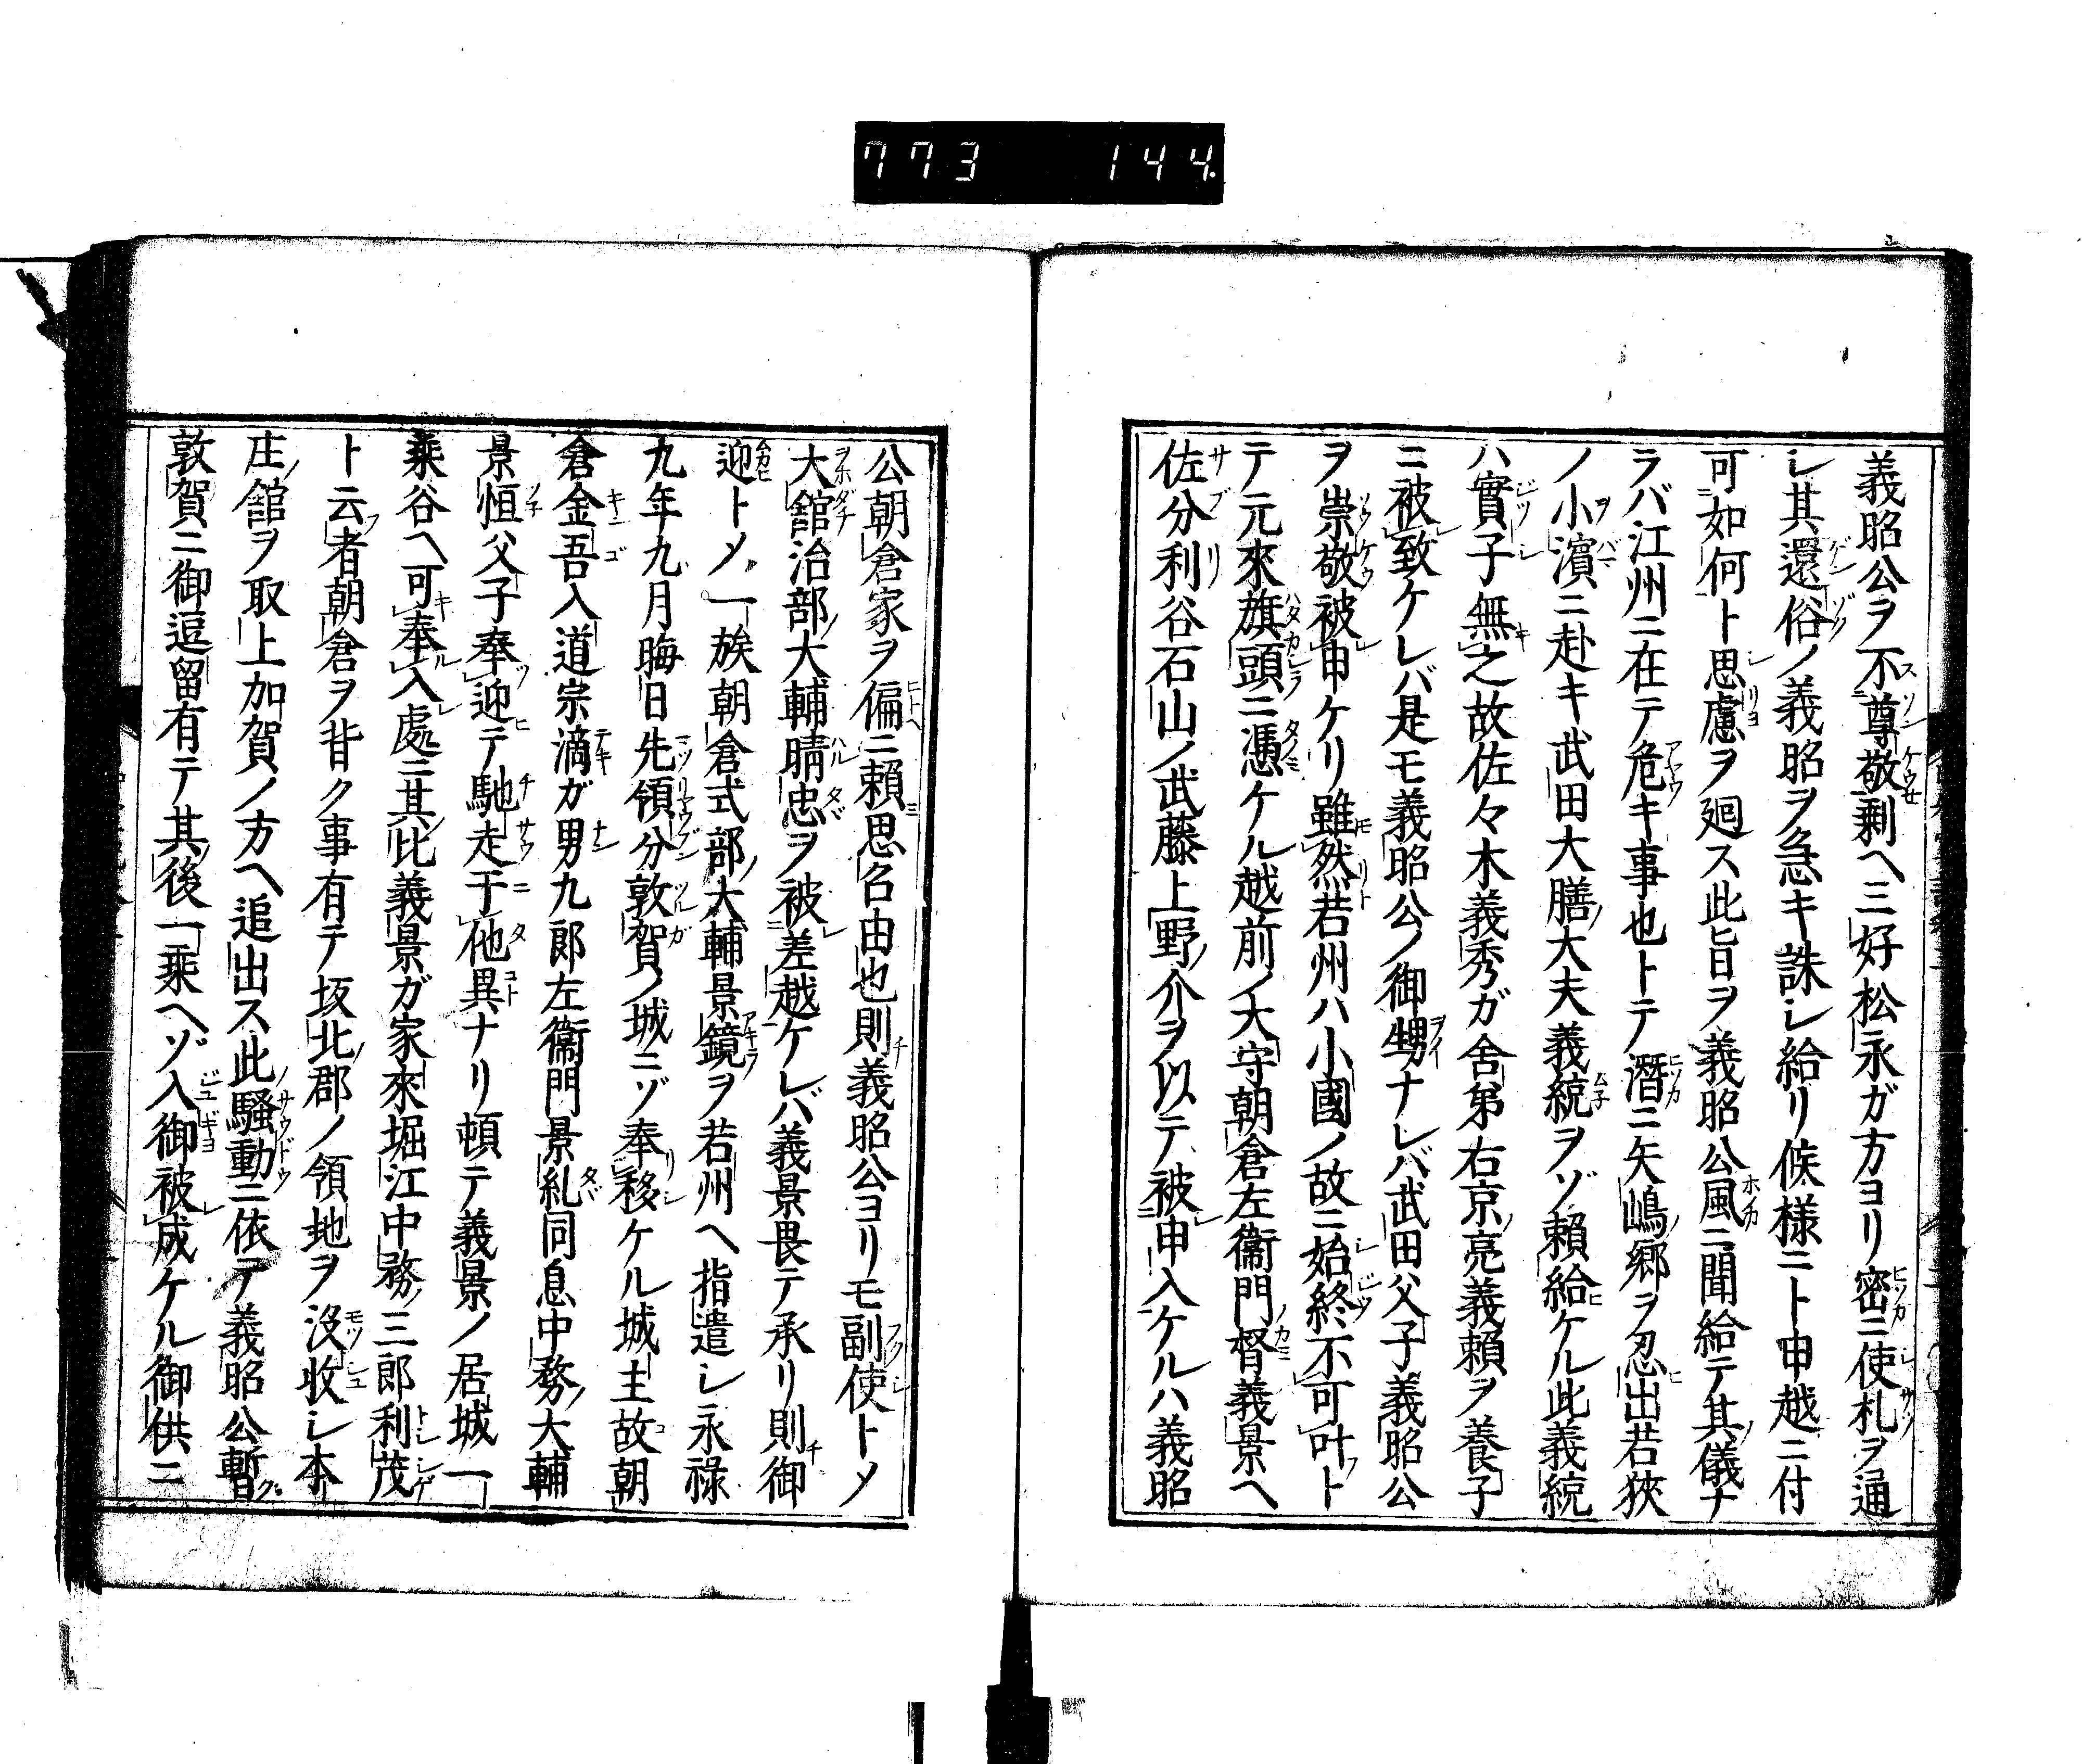 773 144
義昭公ヲ不尊敬剰ヘ三好松永ガ方ヨリ密ニ使札ヲ通
シ其還俗ノ義昭ヲ急キ誅シ給リ候様ニト申越ニ付
可如何ト思慮ヲ廻ス此旨ヲ義昭公風ニ聞給テ其儀ナ
ラバ江州ニ在テ危キ事也トテ潛ニ矢嶋郷ヲ忍出若狹
ノ小濵ニ赴キ武田大膳大夫義統ヲゾ頼給ケル此義統
ハ實子無之故佐々木義秀ガ舍弟右京亮義頼ヲ養子
ニ被致ケレバ是モ義昭公ノ御甥ナレバ武田父子義昭公
ヲ崇敬被申ケリ雖然若州ハ小國ノ故ニ始終不可叶ト
テ元來旗頭ニ憑ケル越前ノ大守朝倉左衞門督義景ヘ
佐分利谷石山ノ武藤上野介ヲ以テ被申入ケルハ義昭
公朝倉家ヲ偏ニ頼思召由也則義昭公ヨリモ副使トメ
大舘治部大輔晴忠ヲ被差越ケレバ義景畏テ承リ則御
迎トメ一族朝倉式部大輔景鏡ヲ若州ヘ指遣シ永禄
九年九月晦日先領分敦賀ノ城ニゾ奉移ケル城主故朝
倉金吾入道宗滴ガ男九郎左衞門景糺同息中務大輔
景恒父子奉迎テ馳走于他異ナリ頓テ義景ノ居城一
乘谷ヘ可奉入處ニ其比義景ガ家來堀江中務三郎利茂
ト云者朝倉ヲ背ク事有テ坂北郡ノ領地ヲ沒收シ本
庄舘ヲ取上加賀ノ方ヘ追出ス此騷動ニ依テ義昭公暫
敦賀ニ御逗留有テ其後一乘ヘゾ入御被成ケル御供ニ